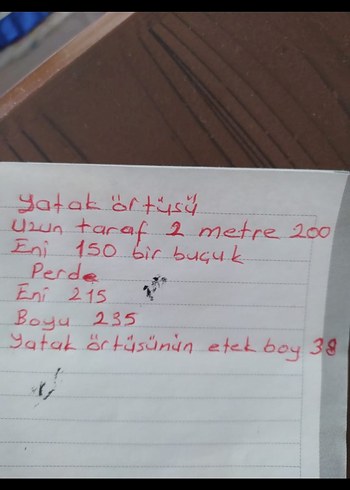 Yatak örtüsü
Uzun taraf 2 metre 200
Eni 150 bir buçuk
Perde
Eni 215
Boyu 235
Yatak örtüsünün etek boy 38